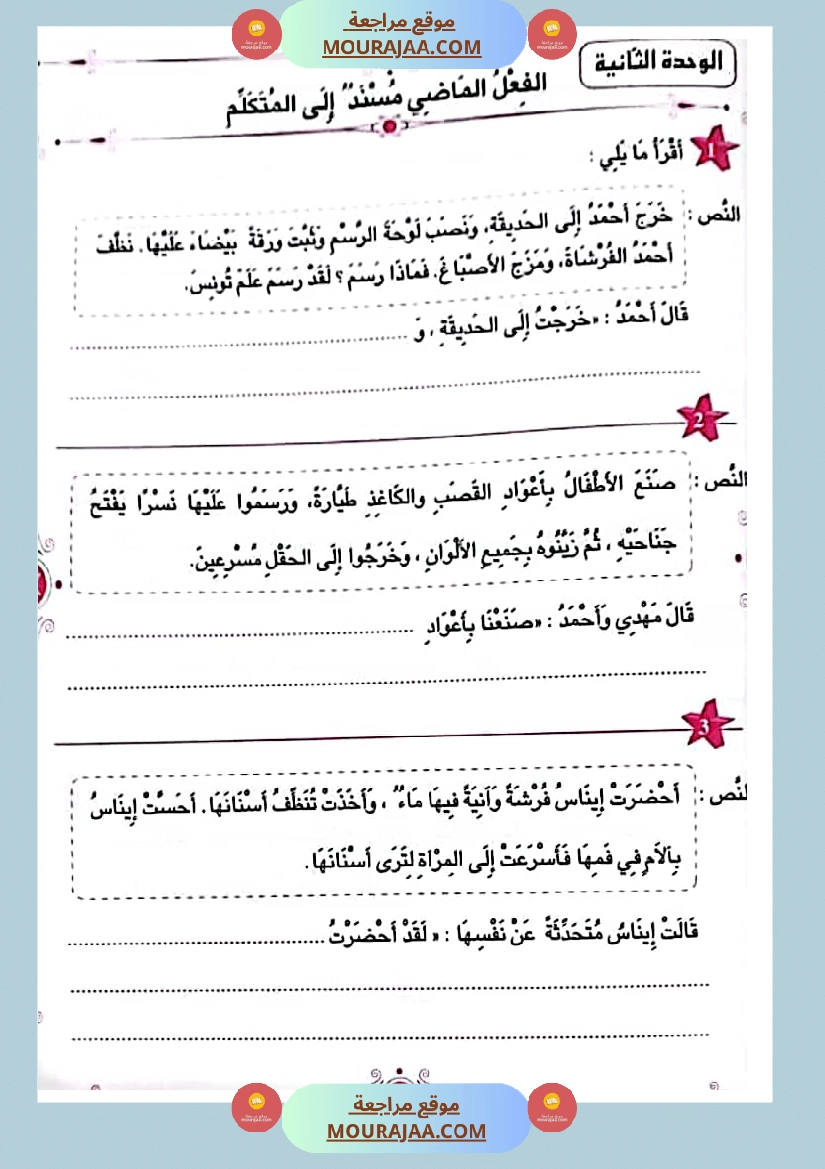 موقع مراجعة
MOURAJAA.COM
الوحدة الثانية
الفِعْلُ المَاضِي مُسْنَدٌ إِلَى المُتَكَلِّمِ
1 أَقْرَأُ مَا يَلِي :
النَّص : خَرَجَ أَحْمَدُ إِلَى الحَدِيقَةِ، وَنَصَبَ لَوْحَةَ الرَّسْمِ وَثَبَّتَ وَرَقَةً بَيْضَاءَ عَلَيْهَا. نَظَّفَ
أَحْمَدُ الفُرْشَاةَ، وَمَزَجَ الأَصْبَاغَ. فَمَاذَا رَسَمَ ؟ لَقَدْ رَسَمَ عَلَمَ تُونِسَ.
قَالَ أَحْمَدُ : «خَرَجْتُ إِلَى الحَدِيقَةِ ، وَ
2
النَّص : صَنَعَ الأَطْفَالُ بِأَعْوَادِ القَصَبِ والكَاغِذِ طَيَّارَةً، وَرَسَمُوا عَلَيْهَا نَسْرًا يَفْتَحُ
جَنَاحَيْهِ ، ثُمَّ زَيَّنُوهُ بِجَمِيعِ الأَلْوَانِ ، وَخَرَجُوا إِلَى الحَقْلِ مُسْرِعِينَ.
قَالَ مَهْدِي وَأَحْمَدُ : «صَنَعْنَا بِأَعْوَادِ
3
النَّص : أَحْضَرَتْ إِينَاسُ فُرْشَةً وَآنِيَةً فِيهَا مَاءٌ ، وَأَخَذَتْ تُنَظِّفُ أَسْنَانَهَا. أَحَسَّتْ إِينَاسُ
بِآلاَمٍ فِي فَمِهَا فَأَسْرَعَتْ إِلَى المِرْآةِ لِتَرَى أَسْنَانَهَا.
قَالَتْ إِينَاسُ مُتَحَدِّثَةً عَنْ نَفْسِهَا : « لَقَدْ أَحْضَرْتُ
موقع مراجعة
MOURAJAA.COM